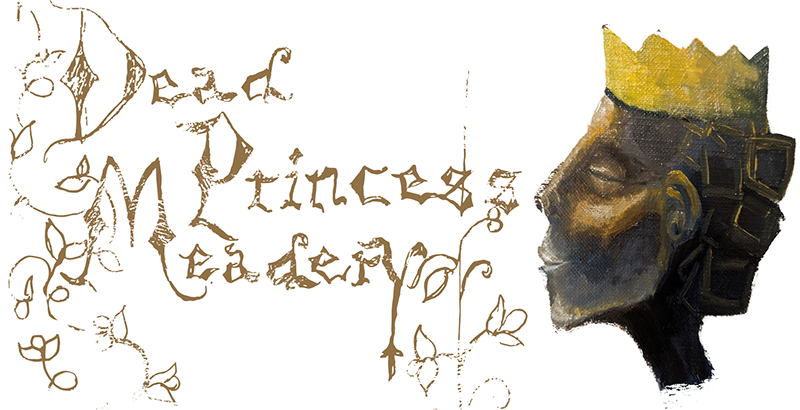 Dead
Princess
Meadery